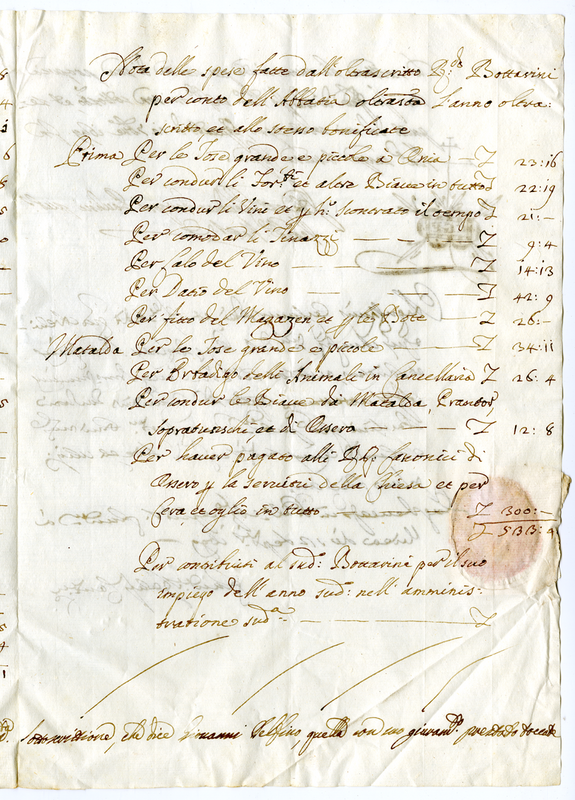 Nota delle spese fatte dall'oltrascritto R:do Bottarini
per conto dell'Abbatia oltrasta l'anno oltra:
scritto et allo stesso bonificate
Prima Per le Tose grande e piccole a Onia — L 23:16
Per condur li For:ti et altre Biave in tutto L 22:19
Per condur li Vini et scontrato il tempo L 21:—
Per comodar li Tinazzi — — — L 9:4
Per Calo del Vino — — — L 14:13
Per Datio del Vino — — — L 42:9
Per fitto del Magazen et Bote — L 26:—
Matalda Per le Tose grande e piccole — L 34:11
Per Erbadigo delli Animali in Cancellaria L 26:4
Per condur le Biave da Matalda,
et di Ossero — — — L 12:8
Per haver pagato alli Canonici di
Ossero la servitù della Chiesa et per
Cera et oglio in tutto — L 300:—
L 533:
Per contribuiti al sud:o Bottarini per il suo
impiego dell'anno sud:o nell'amminis:
tratione sud:a — — — L
sottoscrittione, che dice Zuanni quella con suo giuram:to